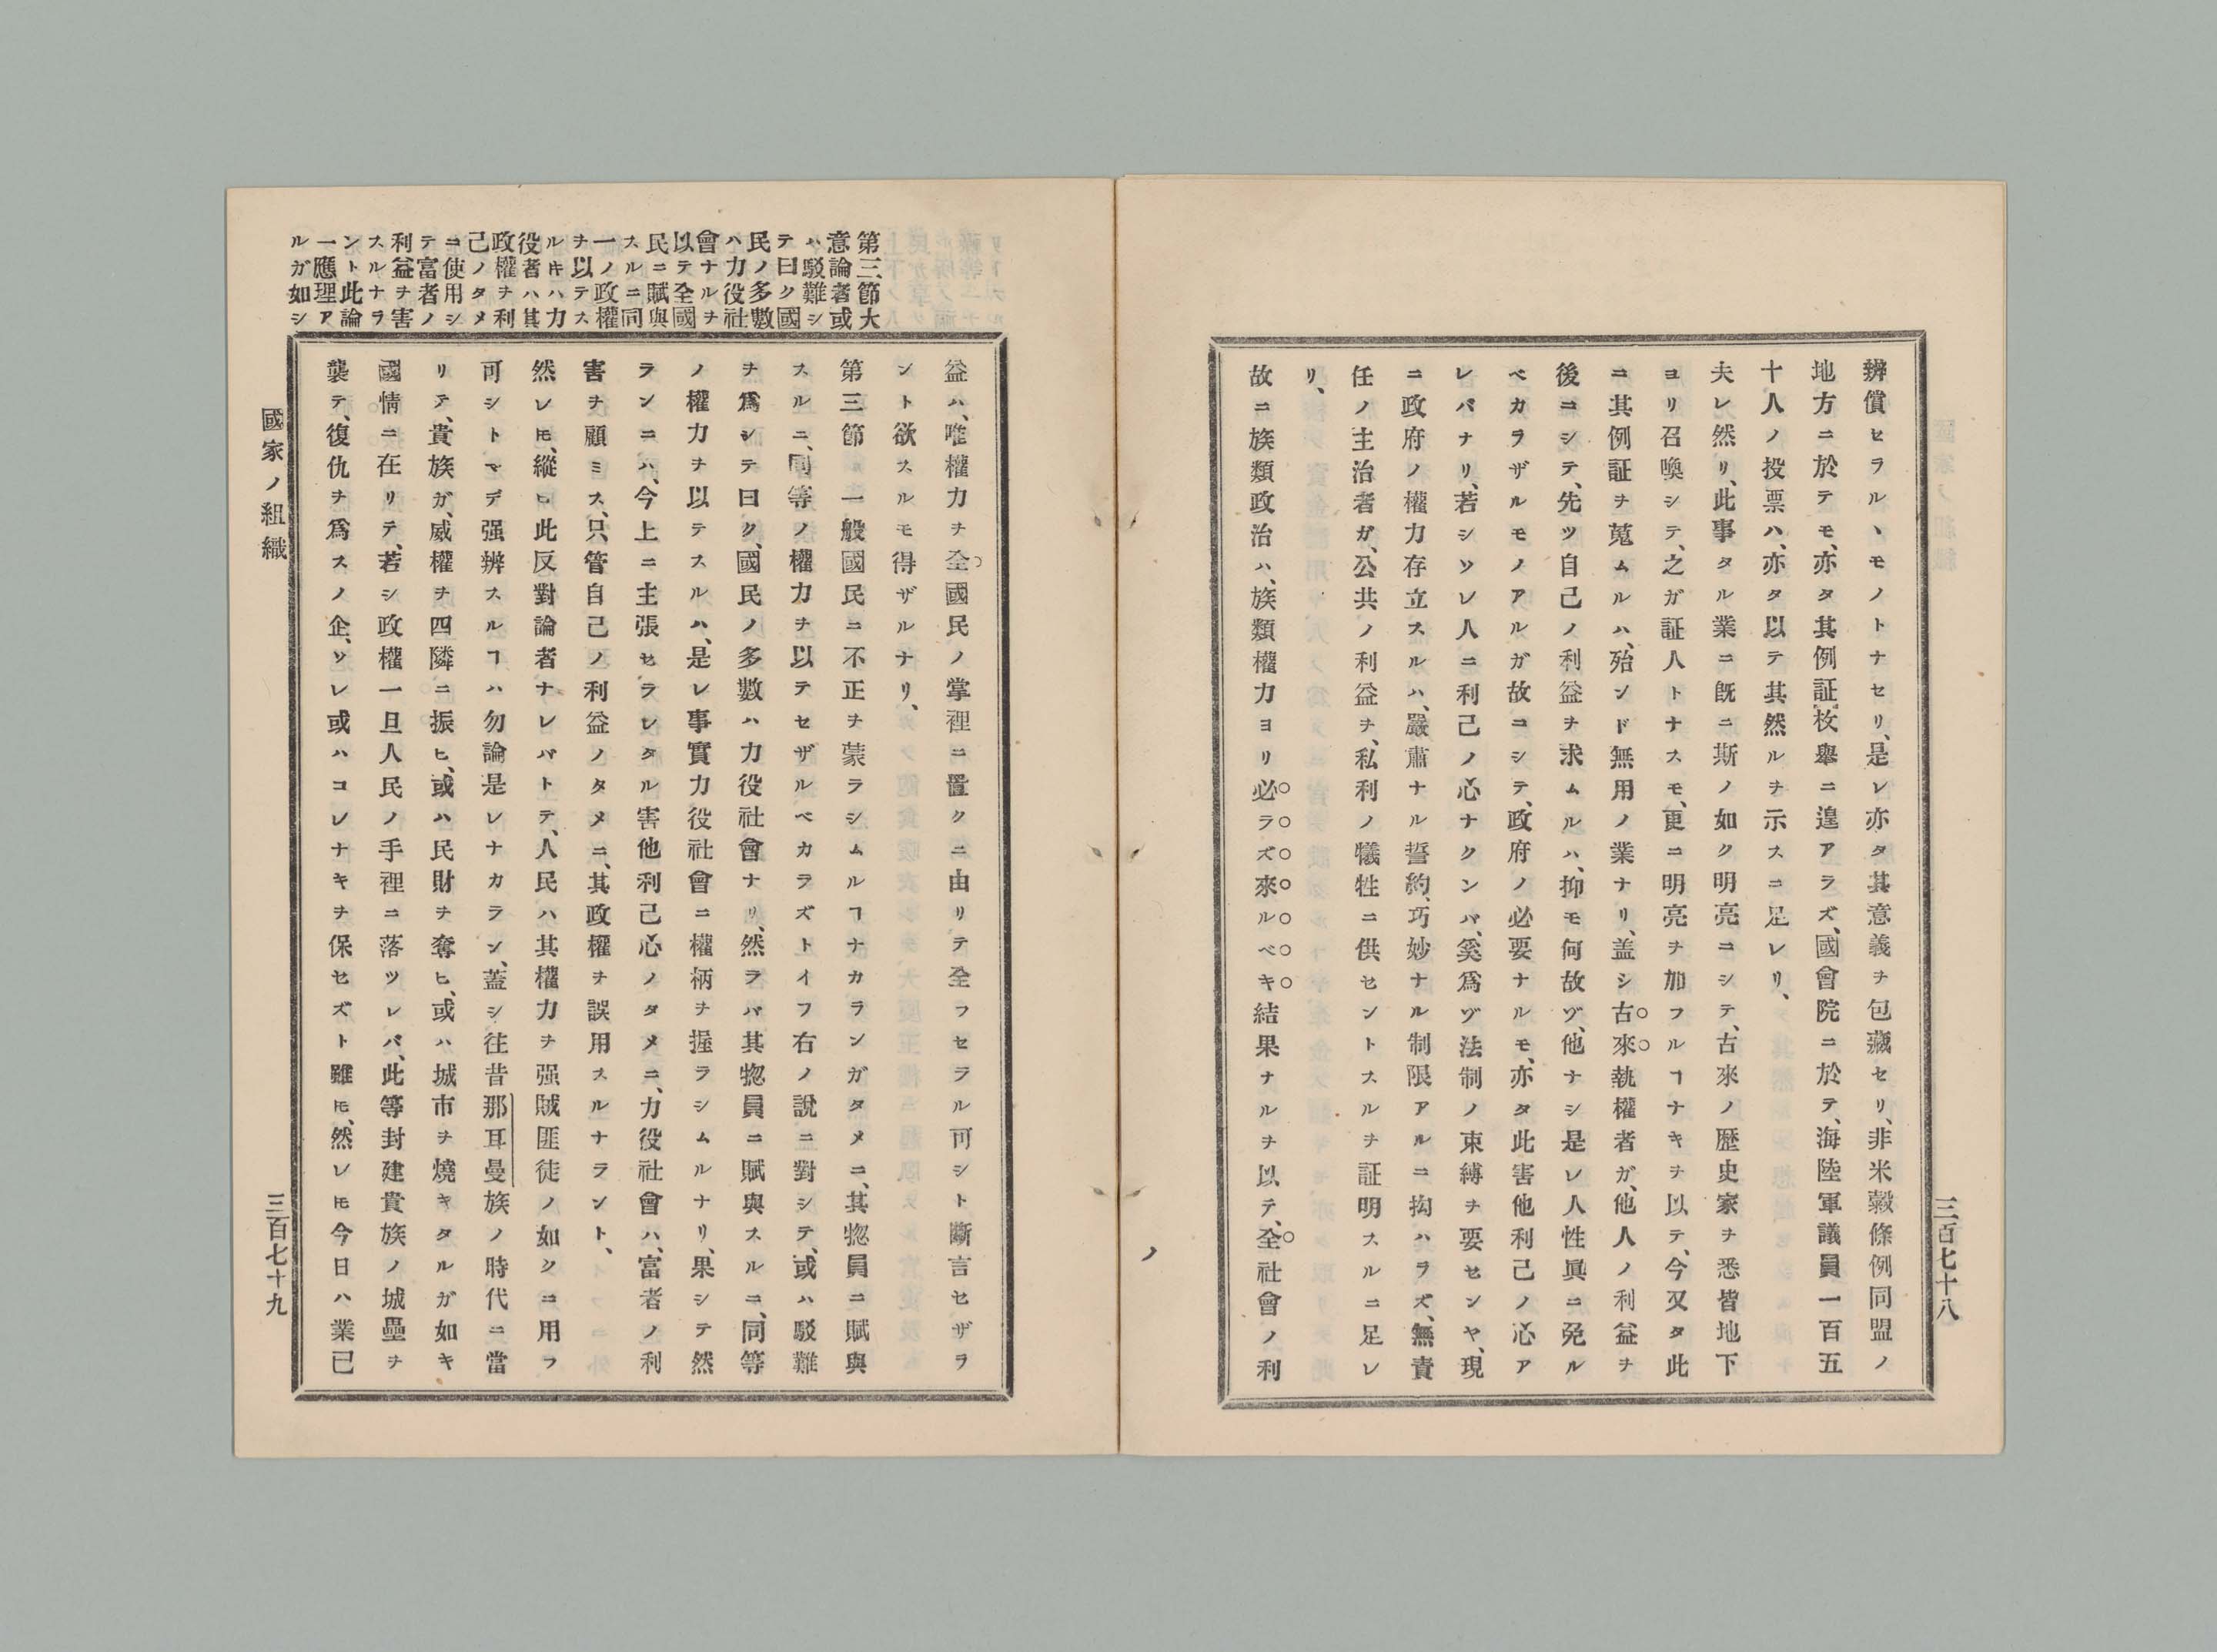 辨償セラルヽモノトナセリ、是レ亦タ其意義ヲ包藏セリ、非米糓條例同盟ノ
地方ニ於テモ、亦タ其例証枚擧ニ遑アラズ、國會院ニ於テ、海陸軍議員一百五
十人ノ投票ハ、亦タ以テ其然ルヲ示スニ足レリ、
夫レ然リ、此事タル業ニ既ニ斯ノ如ク明亮ニシテ、古來ノ歴史家ヲ悉皆地下
ヨリ召喚シテ、之ガ証人トナスモ、更ニ明亮ヲ加フルヿナキヲ以テ、今又タ此
ニ其例証ヲ蒐ムルハ、殆ンド無用ノ業ナリ、盖シ古來執權者ガ、他人ノ利益ヲ
後ニシテ、先ツ自己ノ利益ヲ求ムルハ、抑モ何故ゾ、他ナシ是レ人性眞ニ免ル
ベカラザルモノアルガ故ニシテ、政府ノ必要ナルモ、亦タ此害他利己ノ心ア
レバナリ、若シソレ人ニ利己ノ心ナクンバ、奚爲ゾ法制ノ束縛ヲ要センヤ、現
ニ政府ノ權力存立スルハ、嚴肅ナル誓約、巧妙ナル制限アルニ拘ハラズ、無責
任ノ主治者ガ、公共ノ利益ヲ、私利ノ犧牲ニ供セントスルヲ証明スルニ足レ
リ、
故ニ族類政治ハ、族類權力ヨリ必ラズ來ルベキ結果ナルヲ以テ、全社會ノ利
三百七十八
第三節大
意論者或
ハ駁難シ
テ曰ク國
民ノ多數
ハ力役社
會ナルヲ
以テ全國
民ニ賦與
スルニ同
一ノ政權
ヲ以テス
ルキハ力
役者ハ其
政權ヲ利
己ノタメ
ニ使用シ
テ富者ノ
利益ヲ害
スルナラ
ント此論
一應理ア
ルガ如シ
益ハ、唯權力ヲ全國民ノ掌裡ニ置クニ由リテ全フセラル可シト斷言セザラ
ント欲スルモ得ザルナリ、
第三節 一般國民ニ不正ヲ蒙ラシムルヿナカランガタメニ、其惣員ニ賦與
スルニ、同等ノ權力ヲ以テセザルベカラズトイフ右ノ說ニ對シテ、或ハ駁難
ヲ爲シテ曰ク、國民ノ多數ハ力役社會ナリ、然ラバ其惣員ニ賦與スルニ、同等
ノ權力ヲ以テスルハ、是レ事實力役社會ニ權柄ヲ握ラシムルナリ、果シテ然
ランニハ、今上ニ主張セラレタル害他利己心ノタメニ、力役社會ハ、富者ノ利
害ヲ顧ミス、只管自己ノ利益ノタメニ、其政權ヲ誤用スルナラント、
然レ𪜈、縱ヒ此反對論者ナレバトテ、人民ハ其權力ヲ强賊匪徒ノ如クニ用フ
可シトマデ强辨スルヿハ勿論是レナカラン、蓋シ往昔那耳曼族ノ時代ニ當
リテ、貴族ガ、威權ヲ四隣ニ振ヒ、或ハ民財ヲ奪ヒ、或ハ城市ヲ燒キタルガ如キ
國情ニ在リテ、若シ政權一旦人民ノ手裡ニ落ツレバ、此等封建貴族ノ城壘ヲ
襲テ、復仇ヲ爲スノ企、ソレ或ハコレナキヲ保セズト雖𪜈、然レ𪜈今日ハ業已
國家ノ組織
三百七十九